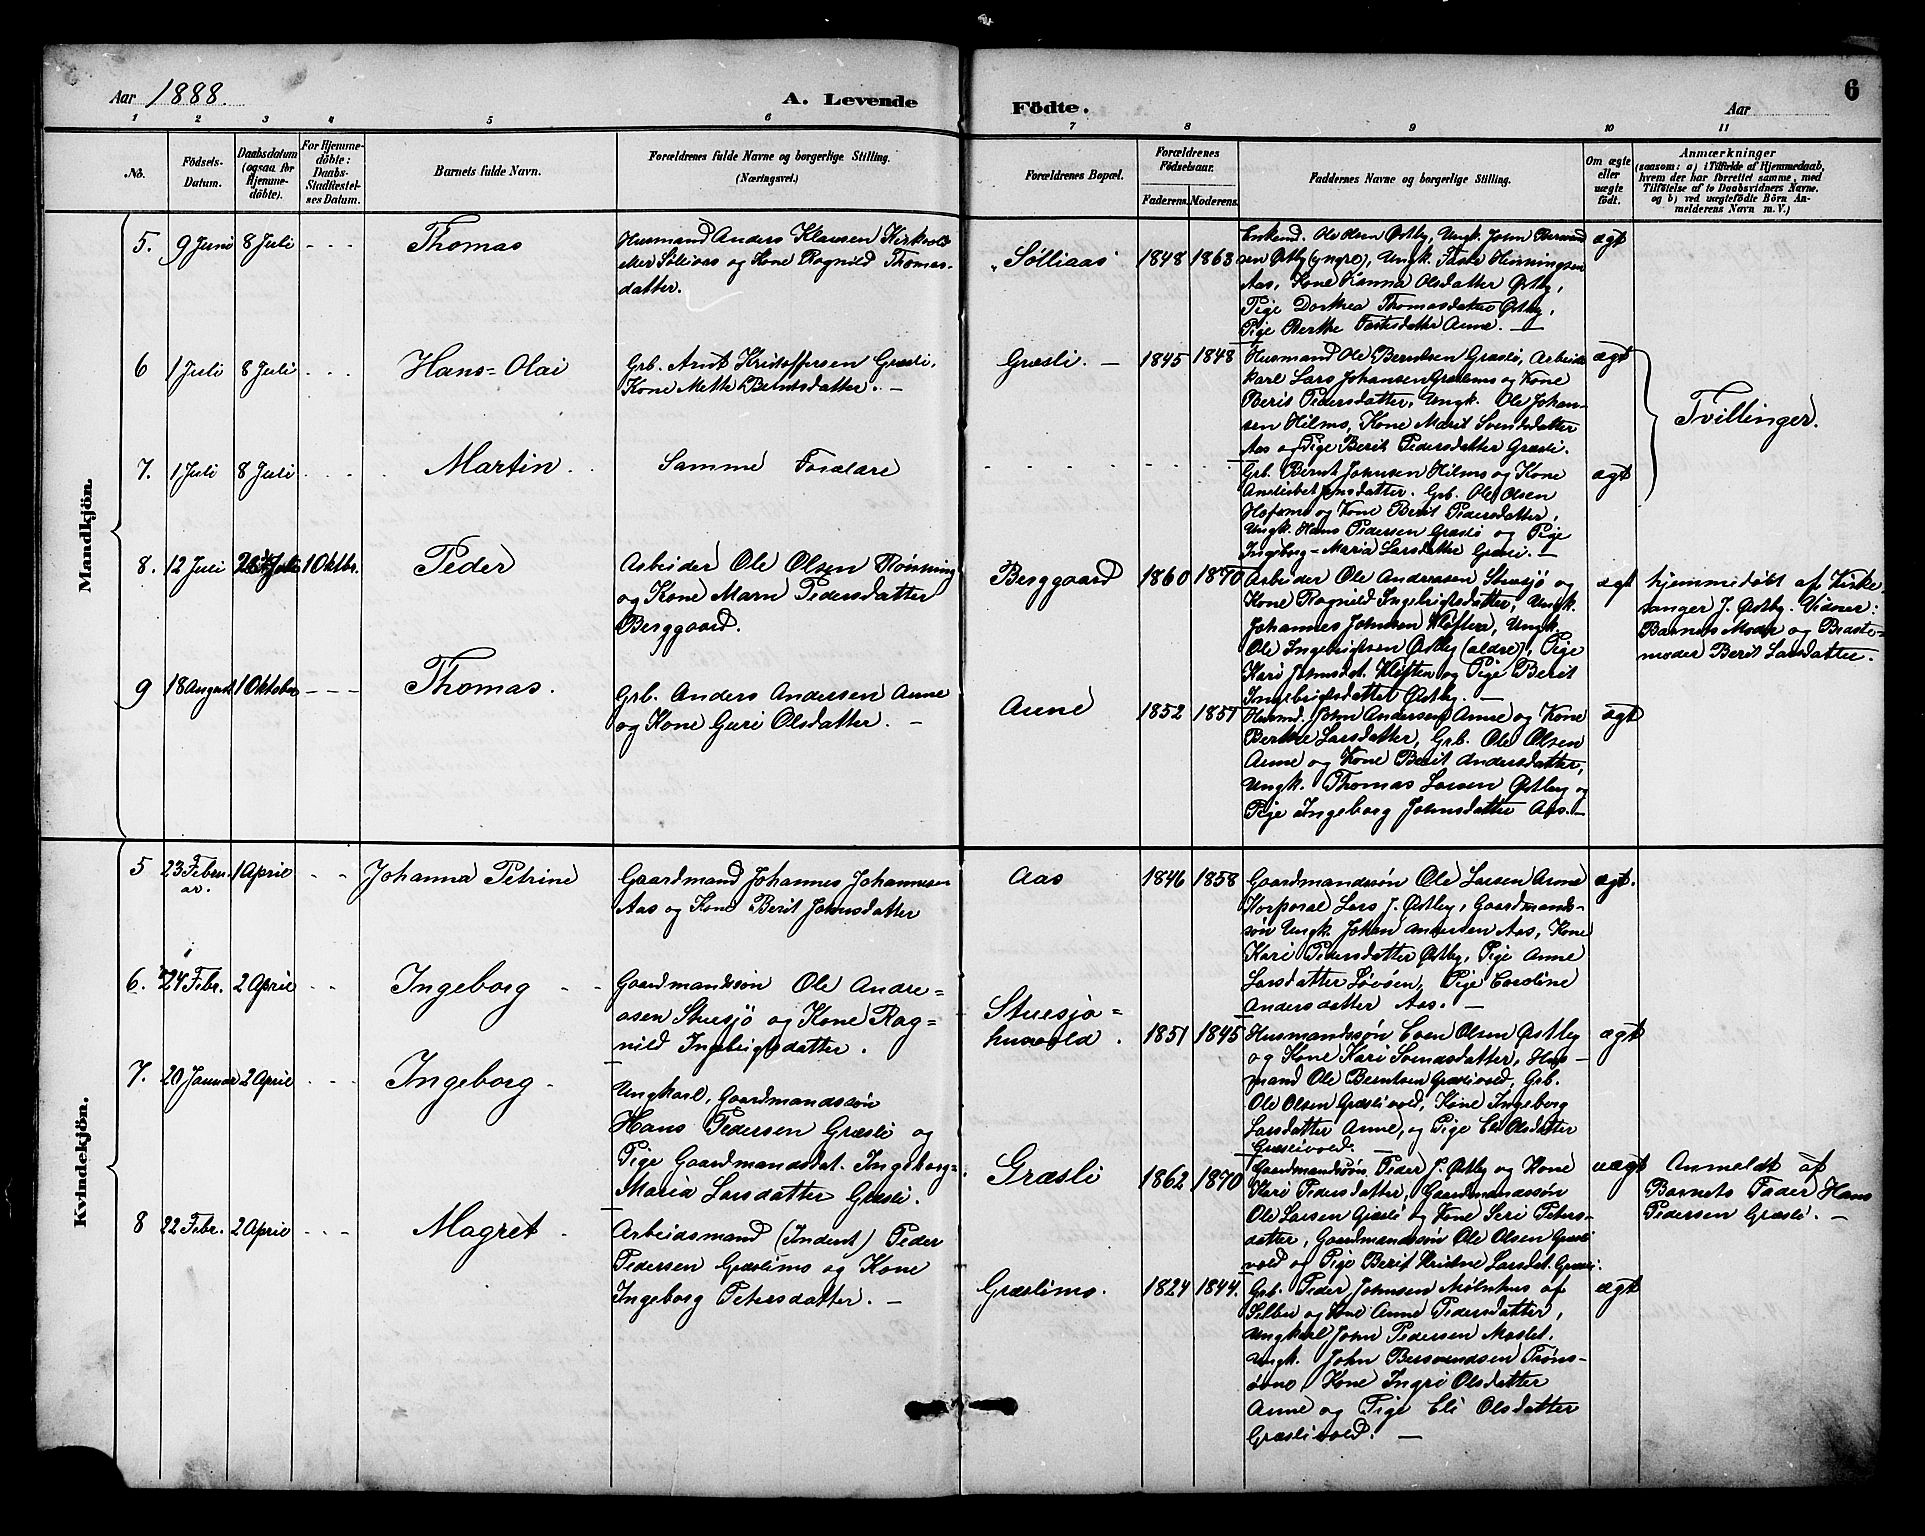 Aar 1888. A. Levende Födte. Aar 6
1 2 3 4 5 6 7 8 9 10 11
No. Födsels-Datum. Daabsdatum (ogsaa for Hjemmedöbte). For Hjemmedöbte: Daabs-Stadfæstelses Datum. Barnets fulde Navn. Forældrenes fulde Navne og borgerlige Stilling. (Næringsvei.) Forældrenes Bopæl. Forældrenes Födselsaar. Faderens. Moderens. Faddernes Navne og borgerlige Stilling. Om ægte eller uægte födt. Anmærkninger (saasom: a) i Tilfælde af Hjemmedaab, hvem der har forrettet samme, med Tilföielse af to Daabsvidners Navne. og b) ved uægtefödte Börn Anmelderens Navn m. V.)
Mandkjön.
5. 9 Juni 8 Juli - - - Thomas
Husmand Anders Klausen
Sølliaas og Kone Ragnild Thomas-
datter.
"Sølliaas" 1848 1863
Enkemd. Ole Olsen Østby, Ungk. John
Østby (yngre), Ungk. Faste Henningsen
Aas, Kone Olsdatter Østby,
Pige Dorthea Thomasdatter Østby,
Pige Berthe Fastesdatter Aune. —
ægt
6 1 Juli 8 Juli - - - Hans=Olai
Grb. Arnt Kristoffersen Græsli,
Kone Mette Berntsdatter. —
Græsli. — 1845 1848
Husmand Ole Berntsen Græsli, Arbeids-
karl Lars Johansen Græslimo og Kone
Berit Pedersdatter, Ungk. Ole Johan-
sen Hilmo, Kone Marit Svendsdatter
Aas og Pige Berit Pedersdatter Græsli.
ægt
Tvillinger.
7. 1 Juli 8 Juli - - - Martin.
Samme Forældre
Grb. Bernt Johnsen Hilmo og Kone
Jensdatter. Grb. Ole Olsen
og Kone Berit Pedersdatter,
Ungk. Hans Pedersen Græsli og Pige
Ingeborg=Maria Larsdatter Græsli. —
ægt
8. 12 Juli Juli 1 Oktbr. Peder
Arbeider Ole Olsen Rønning
og Kone Marn Pedersdatter
Berggaard.
Berggaard 1860 1870
Arbeider Ole Andreasen Stuesjø og
Kone Ragnild Ingebrigtsdatter, Ungk.
Johannes Johnsen Kløften, Ungk.
Ole Ingebrigtsen Østby (ældre), Pige
Kari Johnsdat. Kløften og Pige Berit
Ingebrigtsdatter Østby. —
ægt
hjemmedøbt af Kirke-
sanger J. Østby. Vidner:
Barnets Moder og Bedste-
moder Berit Larsdatter.
9 18 August 1 Oktober - - - Thomas.
Grb. Anders Andersen Aune
og Kone Guri Olsdatter. —
Aune 1852 1851
Husmd. John Andersen Aune og Kone
Berthe Larsdatter, Grb. Ole Olsen
Aune og Kone Berit Andersdatter,
Ungk. Thomas Larsen Østby og
Pige Ingeborg Johnsdatter Aas. —
ægt
Kvindekjön.
5 23 Febru-
ar. 1 April - - Johanna Petrine
Gaardmand Johannes Johannesen
Aas og Kone Berit Johnsdatter
Aas 1846 1858
Gaardmandssøn Ole Larsen Aune
Korporal Lars J. Østby, Gaardmands-
søn Ungk. Johan Andersen Aas, Kone
Kari Pedersdatter Østby, Pige Anne
Larsdatter Løvøen, Pige Caroline
Andersdatter Aas. —
ægt.
6. 24 Febr. 2 April - - Ingeborg - -
Gaardmandssøn Ole Andre-
asen Stuesjø og Kone Rag=
nild Ingebrigtsdatter.
Stuesjø=
. 1851 1845
Husmandssøn Even Olsen Østby
og Kone Kari Svendsdatter, Hus-
mand Ole Berntsen Græslivold, Grb.
Ole Olsen Græslivold, Kone Ingeborg
Larsdatter Aune, og Pige Eli Olsdatter
Græslivold. —
ægt
7. 20 Januar 2 April - - - Ingeborg -
Ungkarl, Gaardmandssøn
Hans Pedersen Græsli og
Pige Gaardmandsdat. Ingeborg=
Maria Larsdatter Græsli.
Græsli 1862 1870
Gaardmandssøn Peder J. Østby og Kone
Kari Pedersdatter, Gaardmandssøn
Ole Larsen Græsli og Kone Seri Peters-
datter, Gaardmandssøn Ole Olsen Græsli-
vold og Pige Berit Kristine Larsdat. Græsli.
uægt
Anmeldt af
Barnets Fader Hans
Pedersen Græsli. —
8 22 Febr. 2 April - - - Magret -
Arbeidsmand (Inderst) Peder
Pedersen Græslimo og Kone
Ingeborg Petersdatter. —
Græslimo. 1824 1844.
Grb. Peder Johnsen Mølnhus af
Selbu og Kone Anne Pedersdatter,
Ungkarl John Pedersen Moslet,
Ungk. John Bersvendsen Trøns-
, Kone Ingri Olsdatter
Aune og Pige Eli Olsdatter
Græslivold. —
ægt